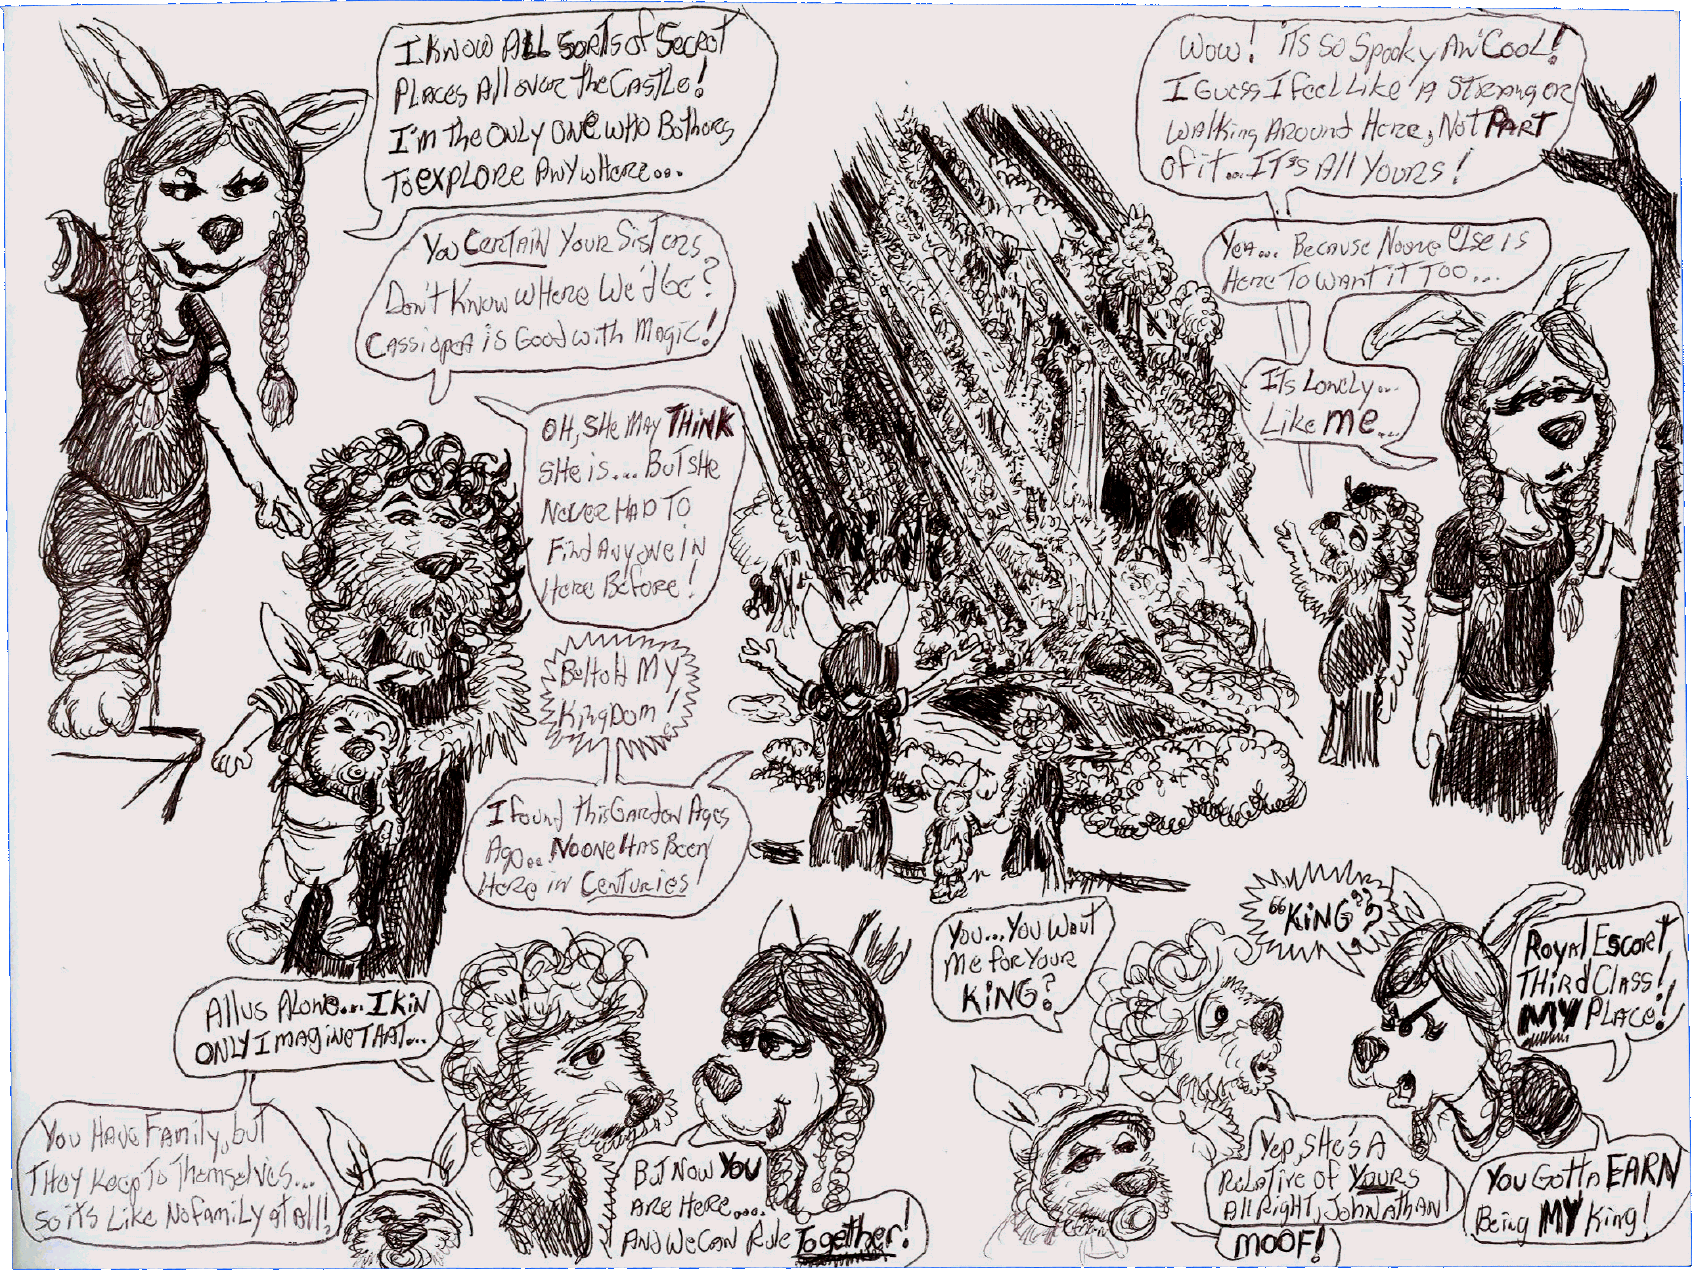 I KNOW ALL SORTS of SECRET
PLACES All OVER The CASTLE!
I'M THE ONLY ONE WHO BOTHERS
To EXPLORE ANYWHERE...
You CERTAIN YOUR SISTERS
DON'T KNOW WHERE WE'd be?
CASSIOPEA iS GOOD WITH MAGIC!
OH, SHE MAY THINK
SHE iS... BUT SHE
NEVER HAD TO
Find ANYONE IN
HERE BEFORE!
BEHOLD MY
KINGDOM!
I found This GARDEN AGES
AGO... NO ONE HAS BEEN
HERE iN CENTURIES!
WOW! iTS SO SPOOKY AN' COOL!
I GUESS I FEEL LIKE A STRANGER
WALKING AROUND HERE, NOT PART
OF iT... IT'S ALL YOURS!
YEA... BECAUSE NOONE ELSE IS
HERE TO WANT iT TOO...
ITS LONELY...
LIKE ME...
ALLUS ALONE... I KIN
ONLY IMAGINE THAT...
YOU HAVE FAMILY, but
THEY KEEP TO THEMSELVES...
SO iTS LIKE NO FAMILY AT All!
BUT NOW YOU
ARE HERE...
AND WE CAN RULE TOGETHER!
YOU... YOU WANT
ME FOR YOUR
KING?
"KING"?
ROYAL ESCORT
THIRD CLASS!
MY PLACE!
YEP, SHE'S A
RELATIVE OF YOURS
All RIGHT, JOHNATHAN!
MOOF!
YOU GOTTA EARN
BEING MY KING!